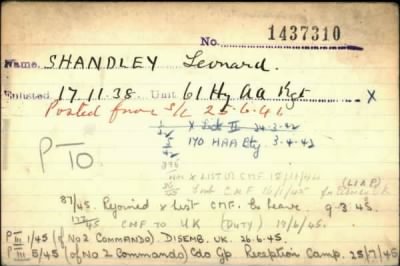 No. 1437310
Name. SHANDLEY Leonard.
Enlisted. 17.11.38. Unit 61 Hy AA Rgt X
Posted from S/L 25.6.41
X List II
170 HAA Bty 3.4.43
P-10
X LIST CMF
(LIAP)
87/45. Rejoined X list CMF. Ex Leave 9.3.45.
CMF TO UK (DUTY) 17/6/45.
P III 1/45 (of No 2 COMMANDO) DISEMB. UK. 26.6.45.
P III 5/45 (of No 2 COMMANDO) Cdo Gp. Reception Camp. 25/7/45